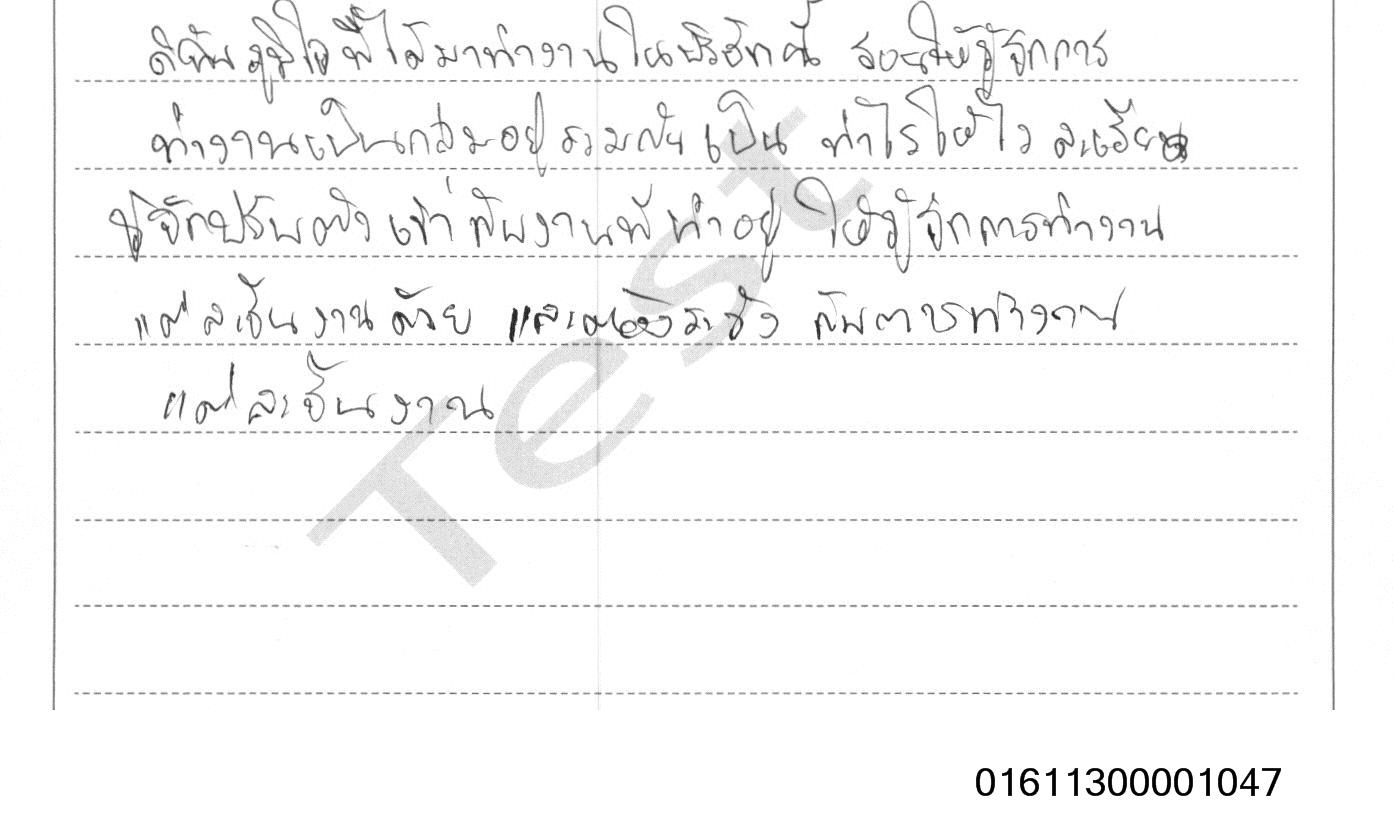 ดิฉันภูมิใจที่ได้มาทำงานในบริษัทนี้ สอนให้รู้จักการ
ทำงานเป็นกลุ่มอยู่รวมกันเป็น ทำไรให้ไว ละเอียด
รู้จักปรับตัวเข้ากับงานที่ทำอยู่ ให้รู้จักการทำงาน
แต่ละชิ้นงานด้วย และต้องระวัง กับการทำงาน
แต่ละชิ้นงาน
Test
01611300001047